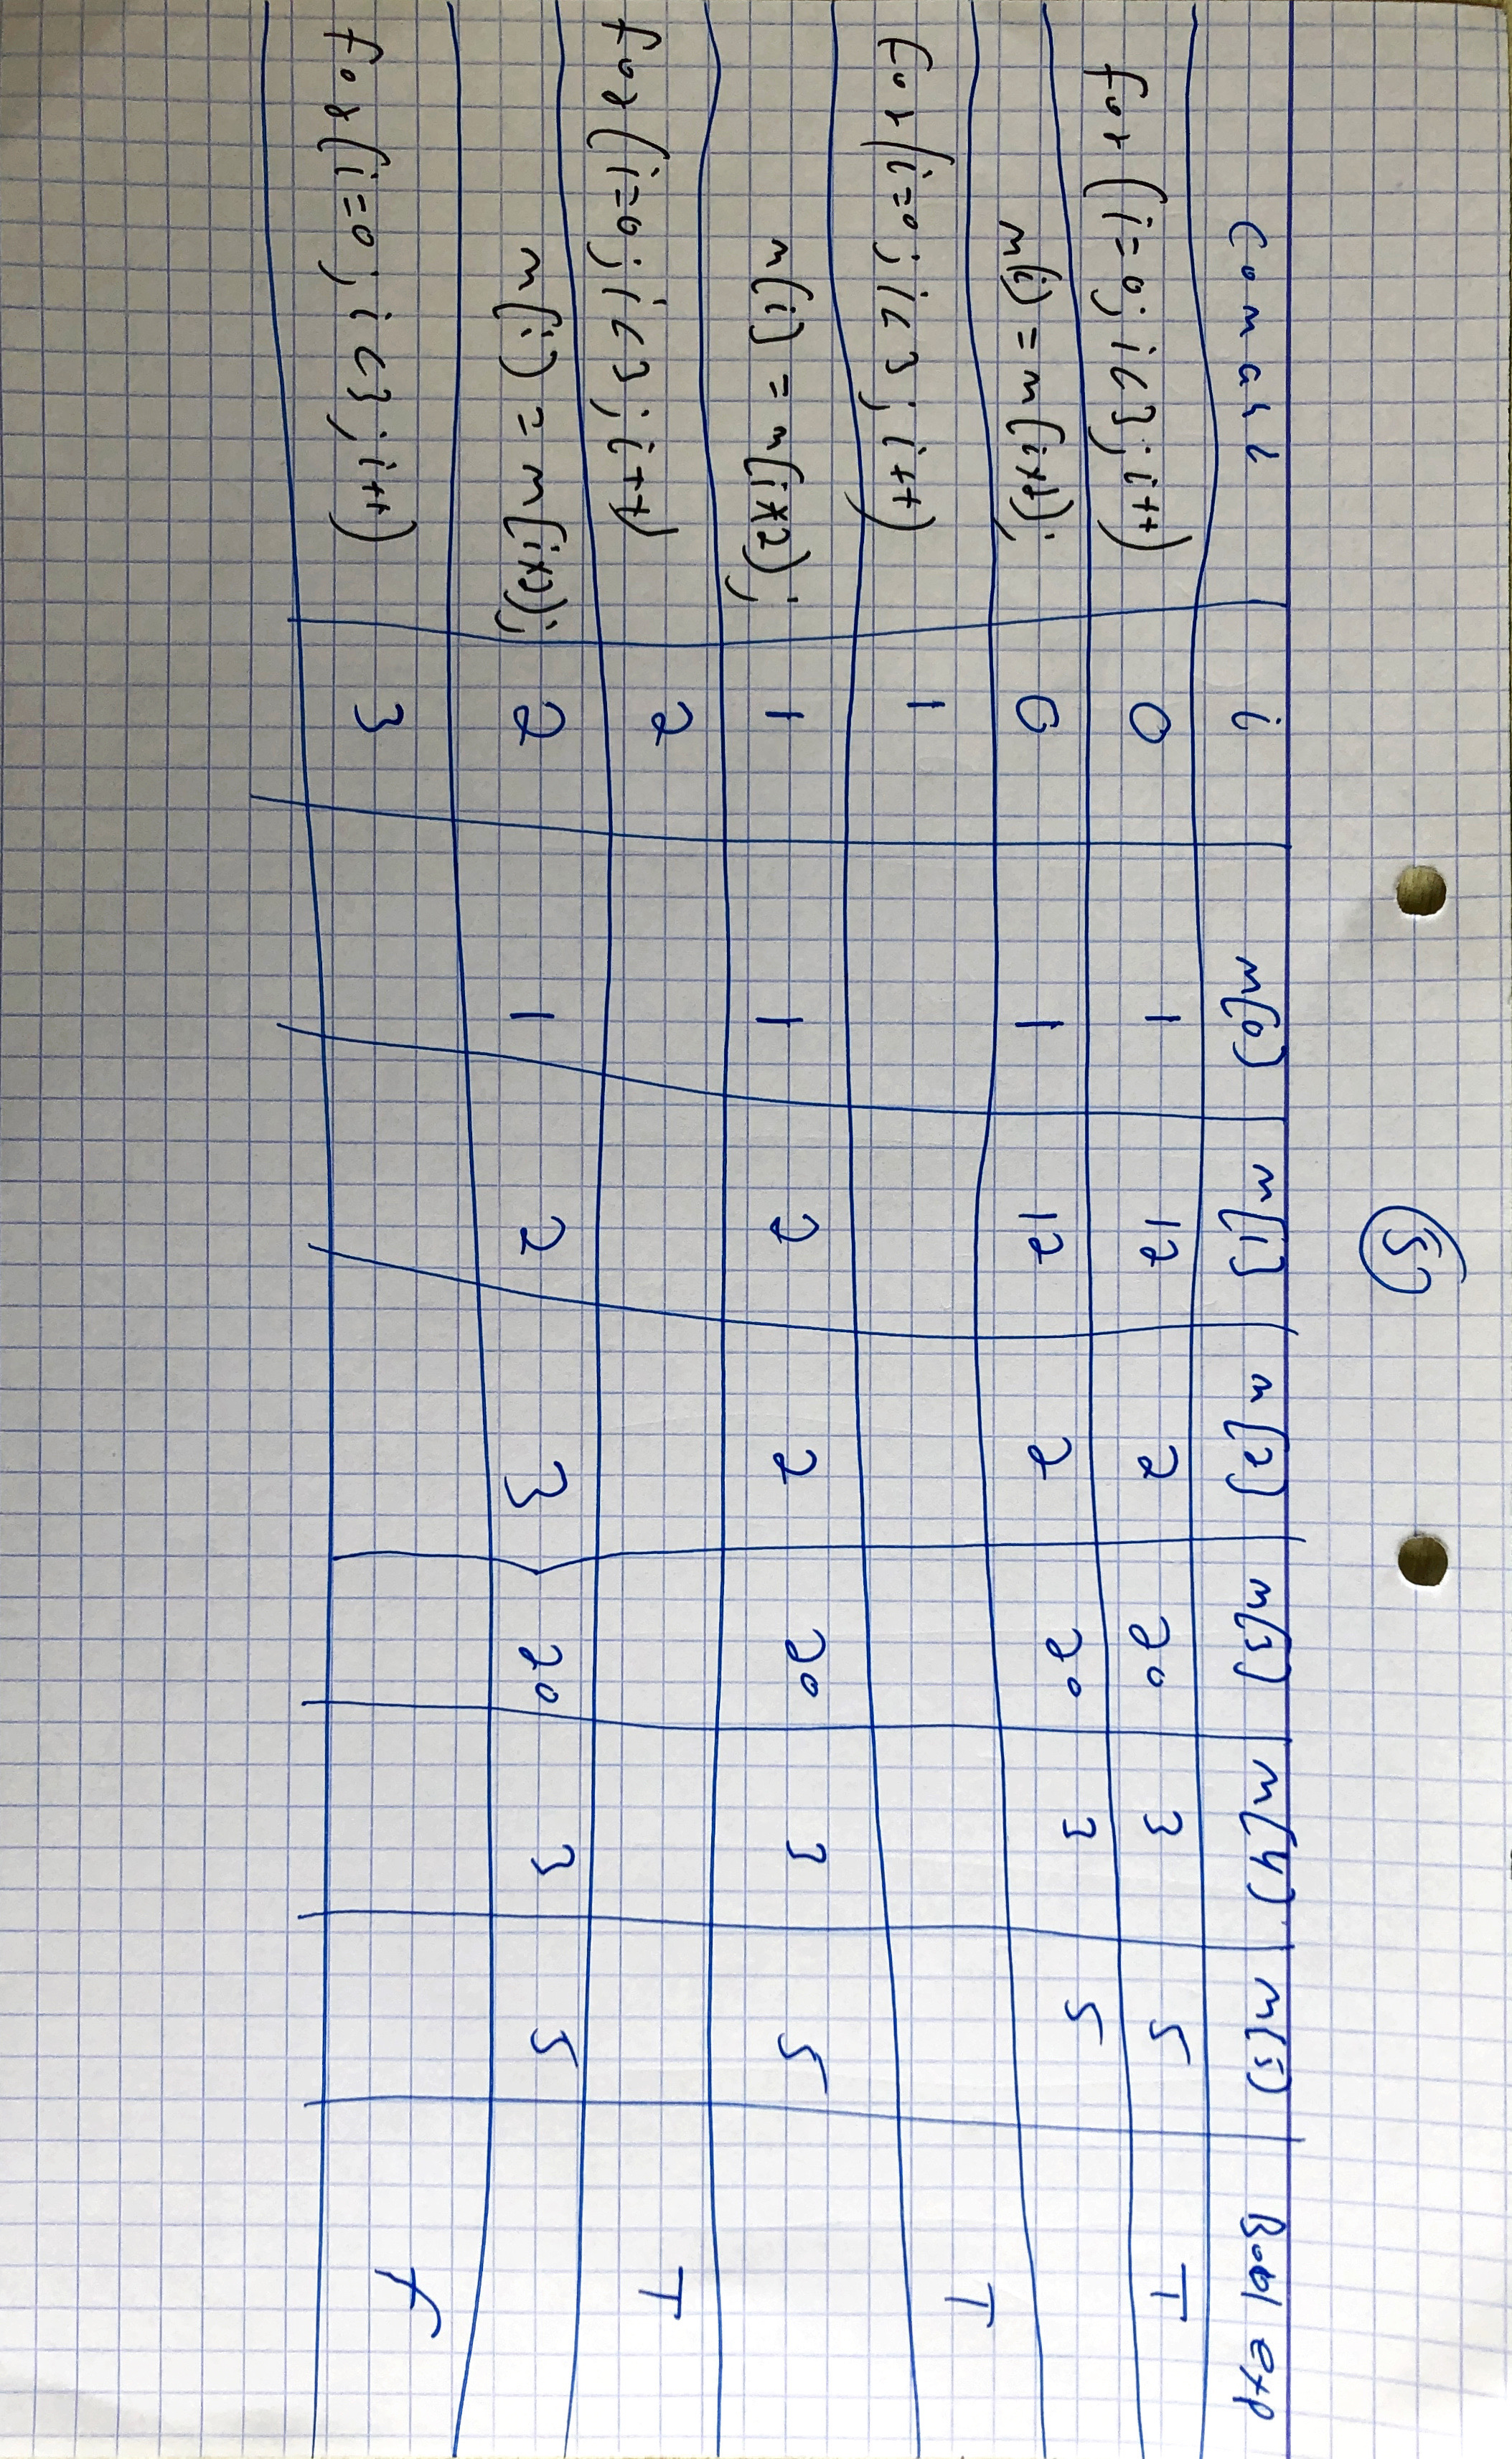 5
Comanl i m[0] m[1] m[2] m[3] m[4] m[5] Bool exp
for (i=0; i<3; i++) 0 1 12 2 20 3 5 T
m[i] = m[i*2]; 0 1 12 2 20 3 5
for (i=0; i<3; i++) 1 T
m[i] = m[i*2]; 1 1 2 2 20 3 5
for (i=0; i<3; i++) 2 T
m[i] = m[i*2]; 2 1 2 3 20 3 5
for (i=0; i<3; i++) 3 F